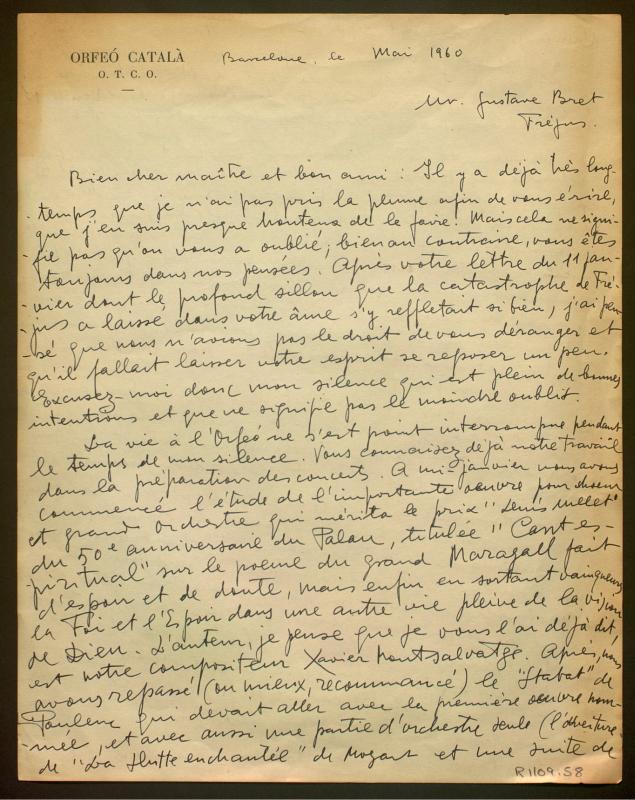 ORFEÓ CATALÀ
O. T. C. O.
Barcelone, le Mai 1960
Mr. Gustave Bret
Fréjus.
Bien cher maître et bon ami : Il y a déjà très long-
temps que je n'ai pas pris la plume afin de vous écrire,
que j'en suis presque honteux de le faire. Mais cela ne signi-
fie pas qu'on vous a oublié; bien au contraire, vous êtes
toujours dans nos pensées. Après votre lettre du 11 jan-
vier dont le profond sillon que la catastrophe de Fré-
jus a laissé dans votre âme s'y reffletait si bien, j'ai pen-
sé que nous n'avions pas le droit de vous déranger et
qu'il fallait laisser votre esprit se reposer un peu.
Excusez-moi donc mon silence qui est plein de bonnes
intentions et que ne signifie pas le moindre oublit.
La vie à l'Orfeó ne s'est point interrompue pendant
le temps de mon silence. Vous connaisez déjà notre travail
dans la préparation des concerts. A mi-janvier nous avons
commencé l'étude de l'importante œuvre pour choeur
et grand orchestre qui mérita le prix "Lluís Millet"
du 50e anniversaire du Palau, titulée "Cant es-
piritual" sur le poème du grand Maragall fait
d'espoir et de doute, mais enfin en sortant vainqueurs
la Foi et l'Espoir dans une autre vie pleine de la vision
de Dieu. L'auteur, je pense que je vous l'ai déjà dit,
est notre compositeur Xavier Montsalvatge. Après, nous
avons repassé (ou mieux, recommancé) le "Stabat" de
Poulenc qui devait aller avec la première œuvre nom-
mée, et avec aussi une partie d'orchestre seule (l'overture
de "La flutte enchantée" de Mozart et une suite de
R1109.58